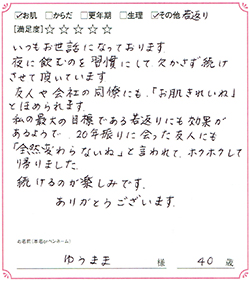 ☑お肌 □からだ □更年期 □生理 ☑その他 若返り
[満足度]☆☆☆☆☆
いつもお世話になっております
夜に飲むのを習慣にして欠かさず続け
させて頂いています
友人や会社の同僚にも、「お肌きれいね」
とほめられます。
私の最大の目標である若返りにも効果が
あるようで、20年振りに会った友人にも
「全然変わらないね」と言われて、ホクホクして
帰りました。
続けるのが楽しみです。
ありがとうございます。
お名前(本名orペンネーム)
ゆうまま 様 40 歳